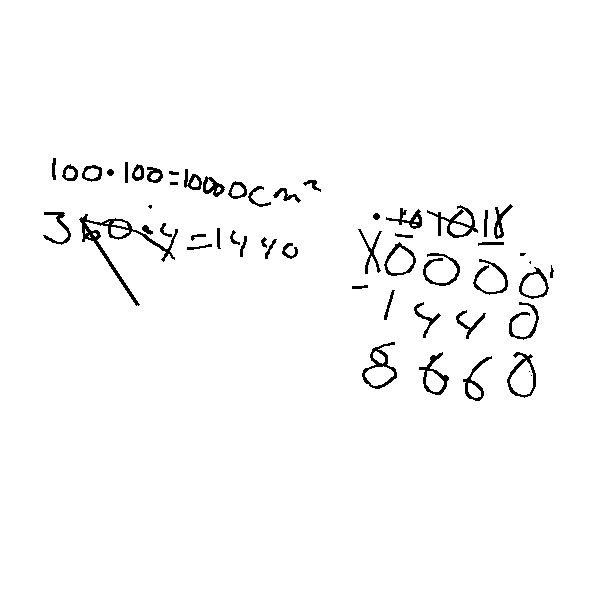 100·100=10000cm²
360·4=1440
10 10 18
10000
-1440
8660